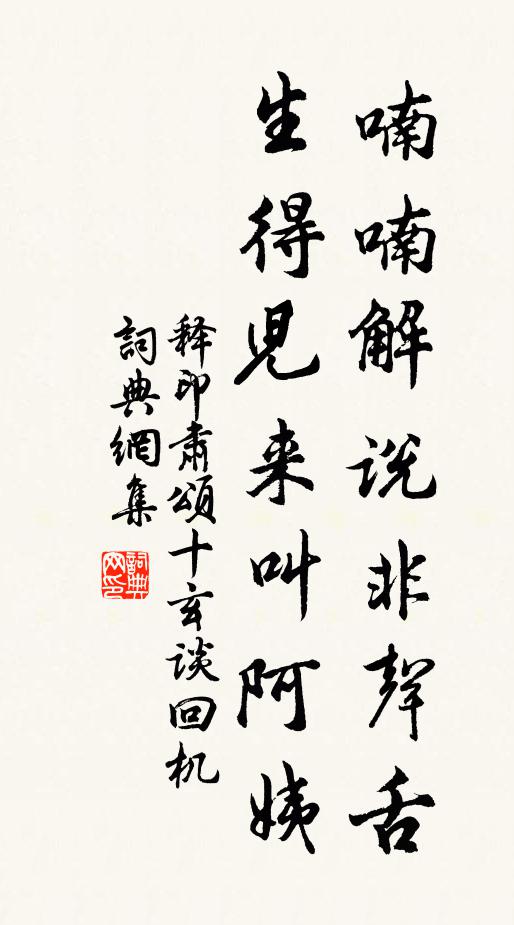 喃喃解说非聲舌
生得児来叫阿姨
释印肃頌十玄谈回机
詞典網集
詞典网印